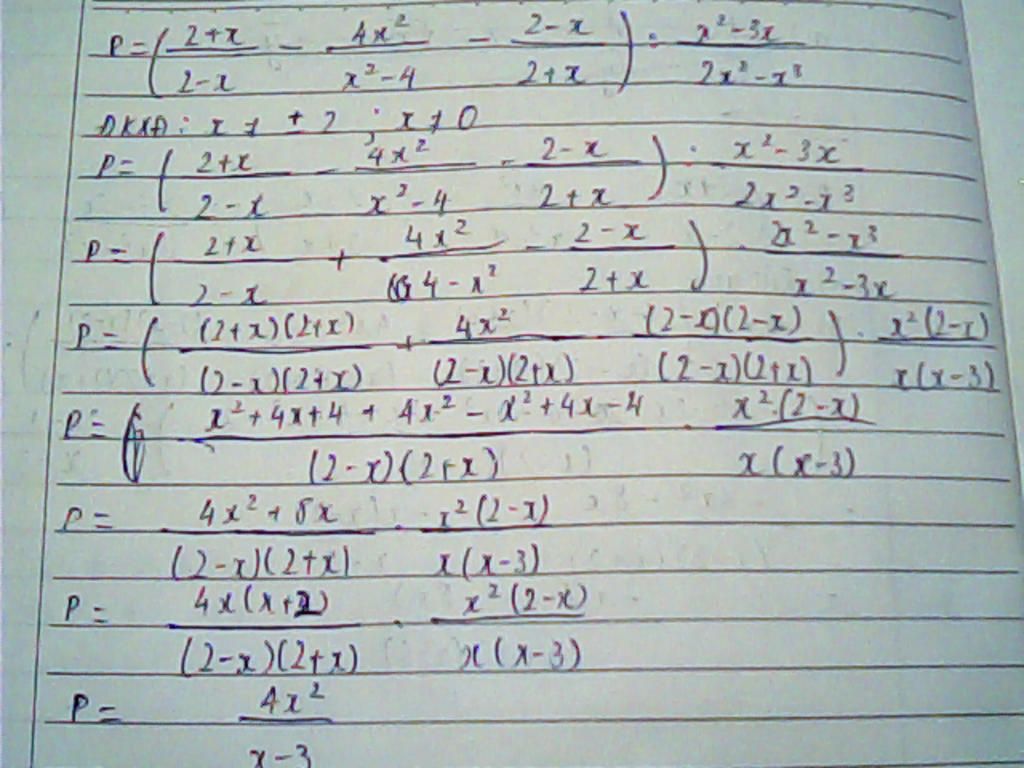 P = ( (2+x)/(2-x) - 4x²/(x²-4) - (2-x)/(2+x) ) : (x²-3x)/(2x²-x³)
ĐKXĐ: x ≠ ±2 ; x ≠ 0
P = ( (2+x)/(2-x) - 4x²/(x²-4) - (2-x)/(2+x) ) : (x²-3x)/(2x²-x³)
P = ( (2+x)/(2-x) + 4x²/(4-x²) - (2-x)/(2+x) ) . (2x²-x³)/(x²-3x)
P = ( (2+x)(2+x)/(2-x)(2+x) + 4x²/(2-x)(2+x) - (2-x)(2-x)/(2-x)(2+x) ) . x²(2-x)/x(x-3)
P = (x²+4x+4+4x²-x²+4x-4)/(2-x)(2+x) . x².(2-x)/x(x-3)
P = (4x²+8x)/(2-x)(2+x) . x²(2-x)/x(x-3)
P = 4x(x+2)/(2-x)(2+x) . x²(2-x)/x(x-3)
P = 4x²/(x-3)